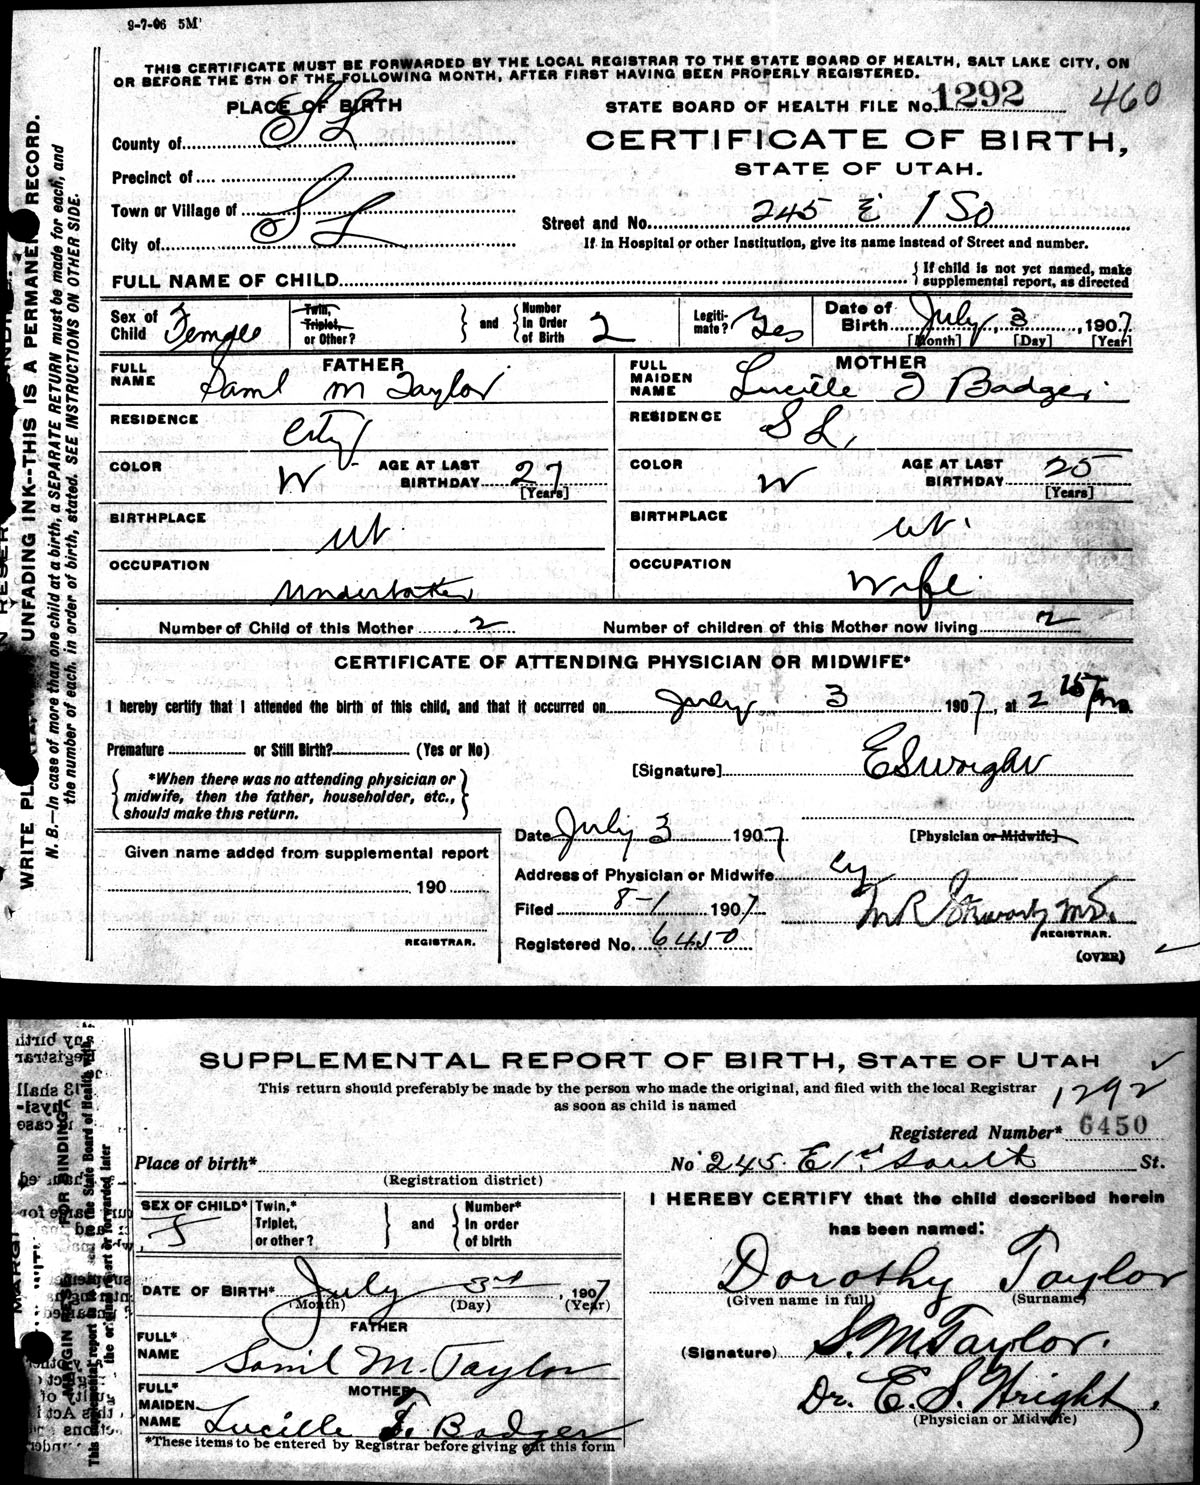 9-7-06 5M
THIS CERTIFICATE MUST BE FORWARDED BY THE LOCAL REGISTRAR TO THE STATE BOARD OF HEALTH, SALT LAKE CITY, ON
OR BEFORE THE 5TH OF THE FOLLOWING MONTH, AFTER FIRST HAVING BEEN PROPERLY REGISTERED.
PLACE OF BIRTH
STATE BOARD OF HEALTH FILE No. 1292 460
County of S L
CERTIFICATE OF BIRTH,
STATE OF UTAH.
Precinct of
Town or Village of
Street and No. 245 E 1 So
City of S L
If in Hospital or other Institution, give its name instead of Street and number.
FULL NAME OF CHILD
If child is not yet named, make
supplemental report, as directed
Sex of Child Female
Twin, Triplet, or Other?
and
Number In Order of Birth 2
Legitimate? Yes
Date of Birth July 3, 1907
[Month] [Day] [Year]
FATHER
FULL NAME Saml M Taylor
MOTHER
FULL MAIDEN NAME Lucille F Badger
RESIDENCE City
RESIDENCE S L,
COLOR W AGE AT LAST BIRTHDAY 27 [Years]
COLOR W AGE AT LAST BIRTHDAY 25 [Years]
BIRTHPLACE Ut.
BIRTHPLACE Ut.
OCCUPATION Undertaker
OCCUPATION Wife
Number of Child of this Mother 2
Number of children of this Mother now living 2
CERTIFICATE OF ATTENDING PHYSICIAN OR MIDWIFE*
I hereby certify that I attended the birth of this child, and that it occurred on July 3 1907, at 2 15
Premature or Still Birth? (Yes or No)
*When there was no attending physician or
midwife, then the father, householder, etc.,
should make this return.
[Signature] E S Wright
Date July 3 1907
[Physician or Midwife]
Given name added from supplemental report
190
REGISTRAR.
Address of Physician or Midwife Cy
Filed 8-1 1907
M R Stewart MD.
REGISTRAR.
Registered No. 6450
(OVER)
WRITE UNFADING INK--THIS IS A PERMANENT RECORD.
N. B.—In case of more than one child at a birth, a SEPARATE RETURN must be made for each, and
the number of each, in order of birth, stated. SEE INSTRUCTIONS ON OTHER SIDE.
SUPPLEMENTAL REPORT OF BIRTH, STATE OF UTAH
This return should preferably be made by the person who made the original, and filed with the local Registrar
as soon as child is named
1292
Registered Number* 6450
Place of birth*
(Registration district)
No 245. E 1st South St.
SEX OF CHILD* F
Twin,* Triplet, or other?
and
Number* In order of birth
I HEREBY CERTIFY that the child described herein
has been named:
Dorothy Taylor
(Given name in full) (Surname)
DATE OF BIRTH* July 3rd, 1907
(Month) (Day) (Year)
FATHER
FULL* NAME Saml M. Taylor
(Signature) S. M Taylor.
Dr. E. S. Wright,
(Physician or Midwife)
MOTHER
FULL* MAIDEN NAME Lucille F. Badger
*These items to be entered by Registrar before giving out this form